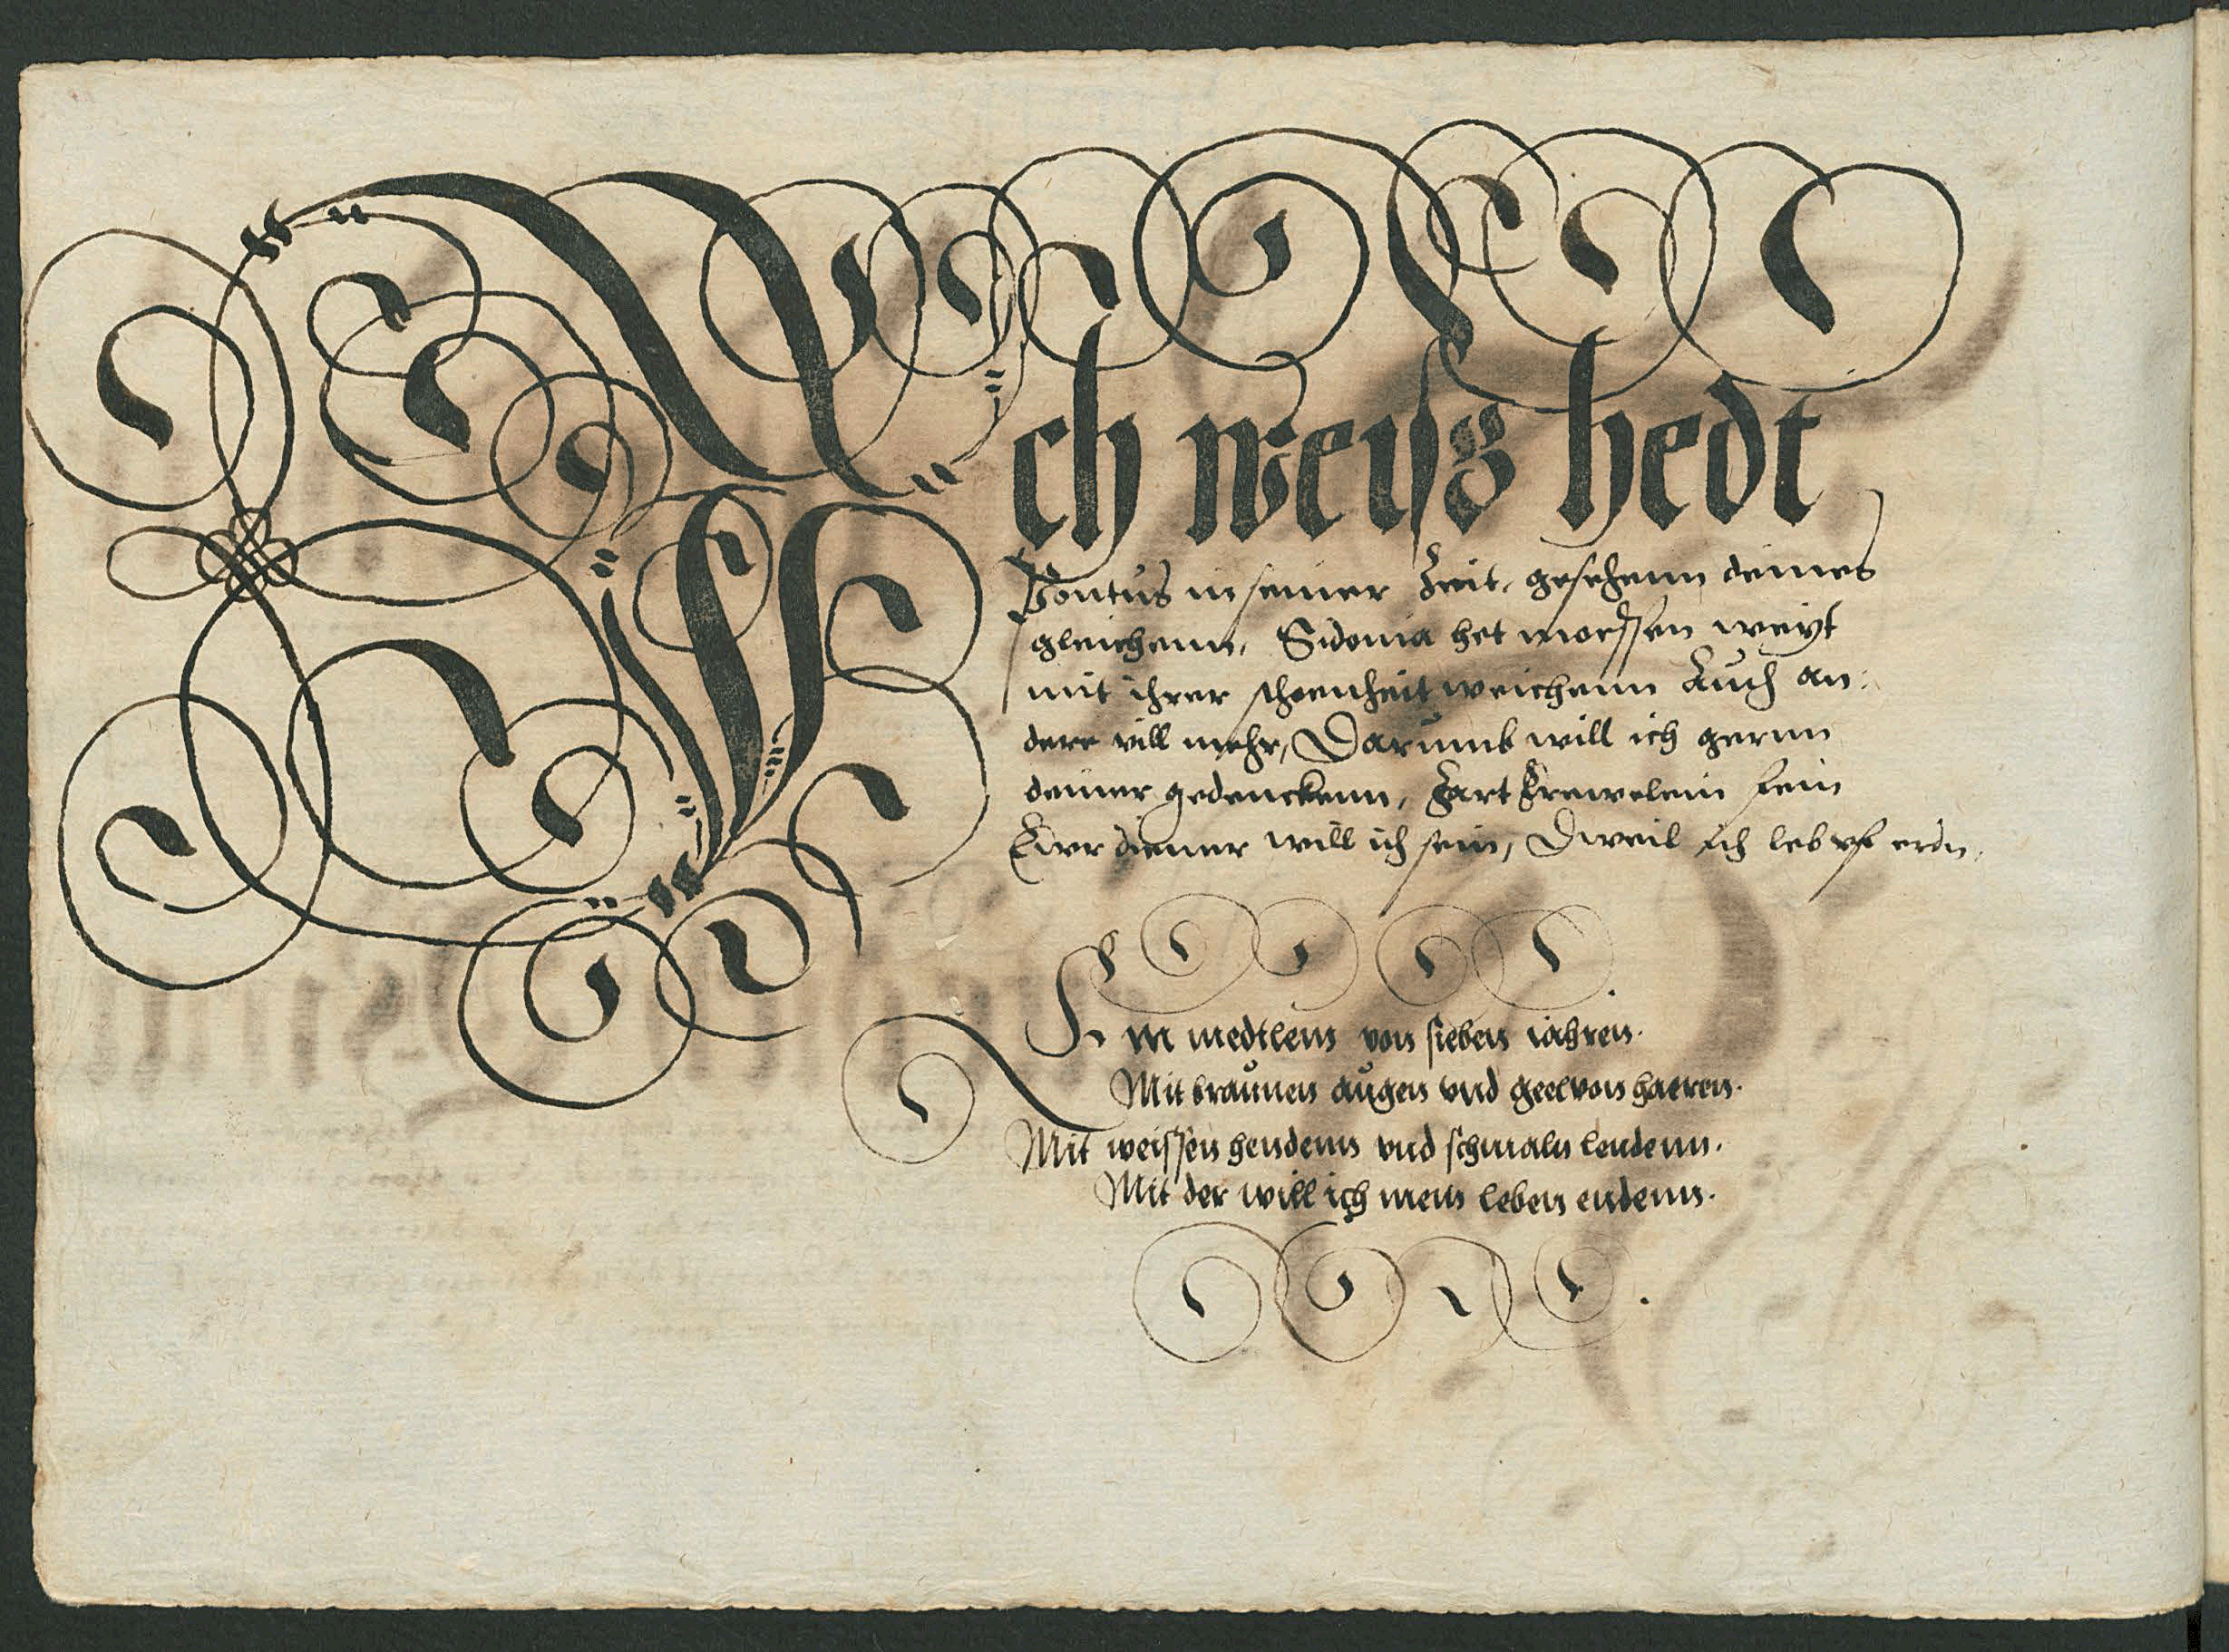 Ich weisz hedt
Pontus in seiner Zeit, gesehenn deines
gleichenn, Sidonia het moessen weyt
mit ihrer schoenheit weichenn Auch an:
dere vill mehr, Darumb will ich gernn
deiner gedenckenn, Zart Frewelein fein
Ewr diener will ich sein, Dweil ich leb vf erdn,
Ein medtlein von sieben iahren.
Mit braunen augen vnd geel von haeren.
Mit weissen hendenn vnd schmaln lendenn.
Mit der will ich mein leben endenn.